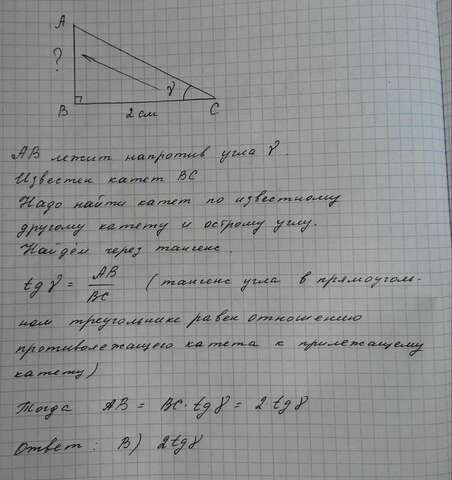 A
?
γ
B
2 см
C
AB лежит напротив угла γ.
Известен катет BC
Надо найти катет по известному
другому катету и острому углу.
Найдём через тангенс.
tg γ = AB/BC (тангенс угла в прямоуголь-
ном треугольнике равен отношению
противолежащего катета к прилежащему
катету)
Тогда AB = BC·tg γ = 2·tg γ
Ответ: B) 2tg γ